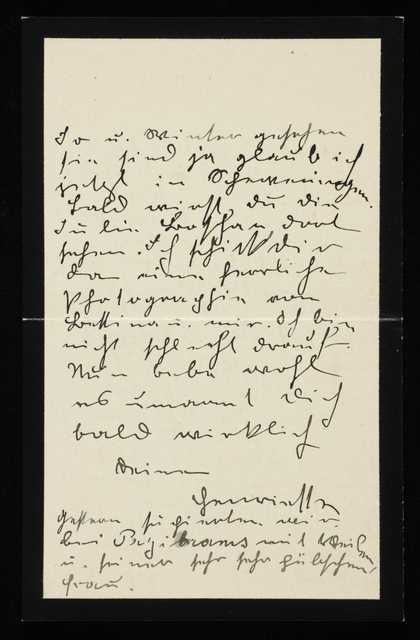 So u. Winter gesehen
sie sind ja glaub ich
jetzt in Scheveningen.
Bald wirst du die
Julie dort
sehen. Ich schick dir
da eine herrliche
Photographie von
Bettina u. mir. Ich bin
nicht schlecht drauf.
Nun lebe wohl
es umarmt Dich
bald wirklich
Deine
Henriette
Gestern soupierten wir
bei Przibrams mit
u. seiner sehr sehr hübschen
Frau.